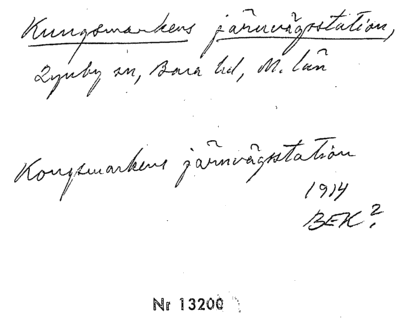 Kungsmarkens järnvägsstation,
Lyngby sn, Bara hd, M. län
Kongsmarkens järnvägsstation
1914
BEK?
Nr 13200